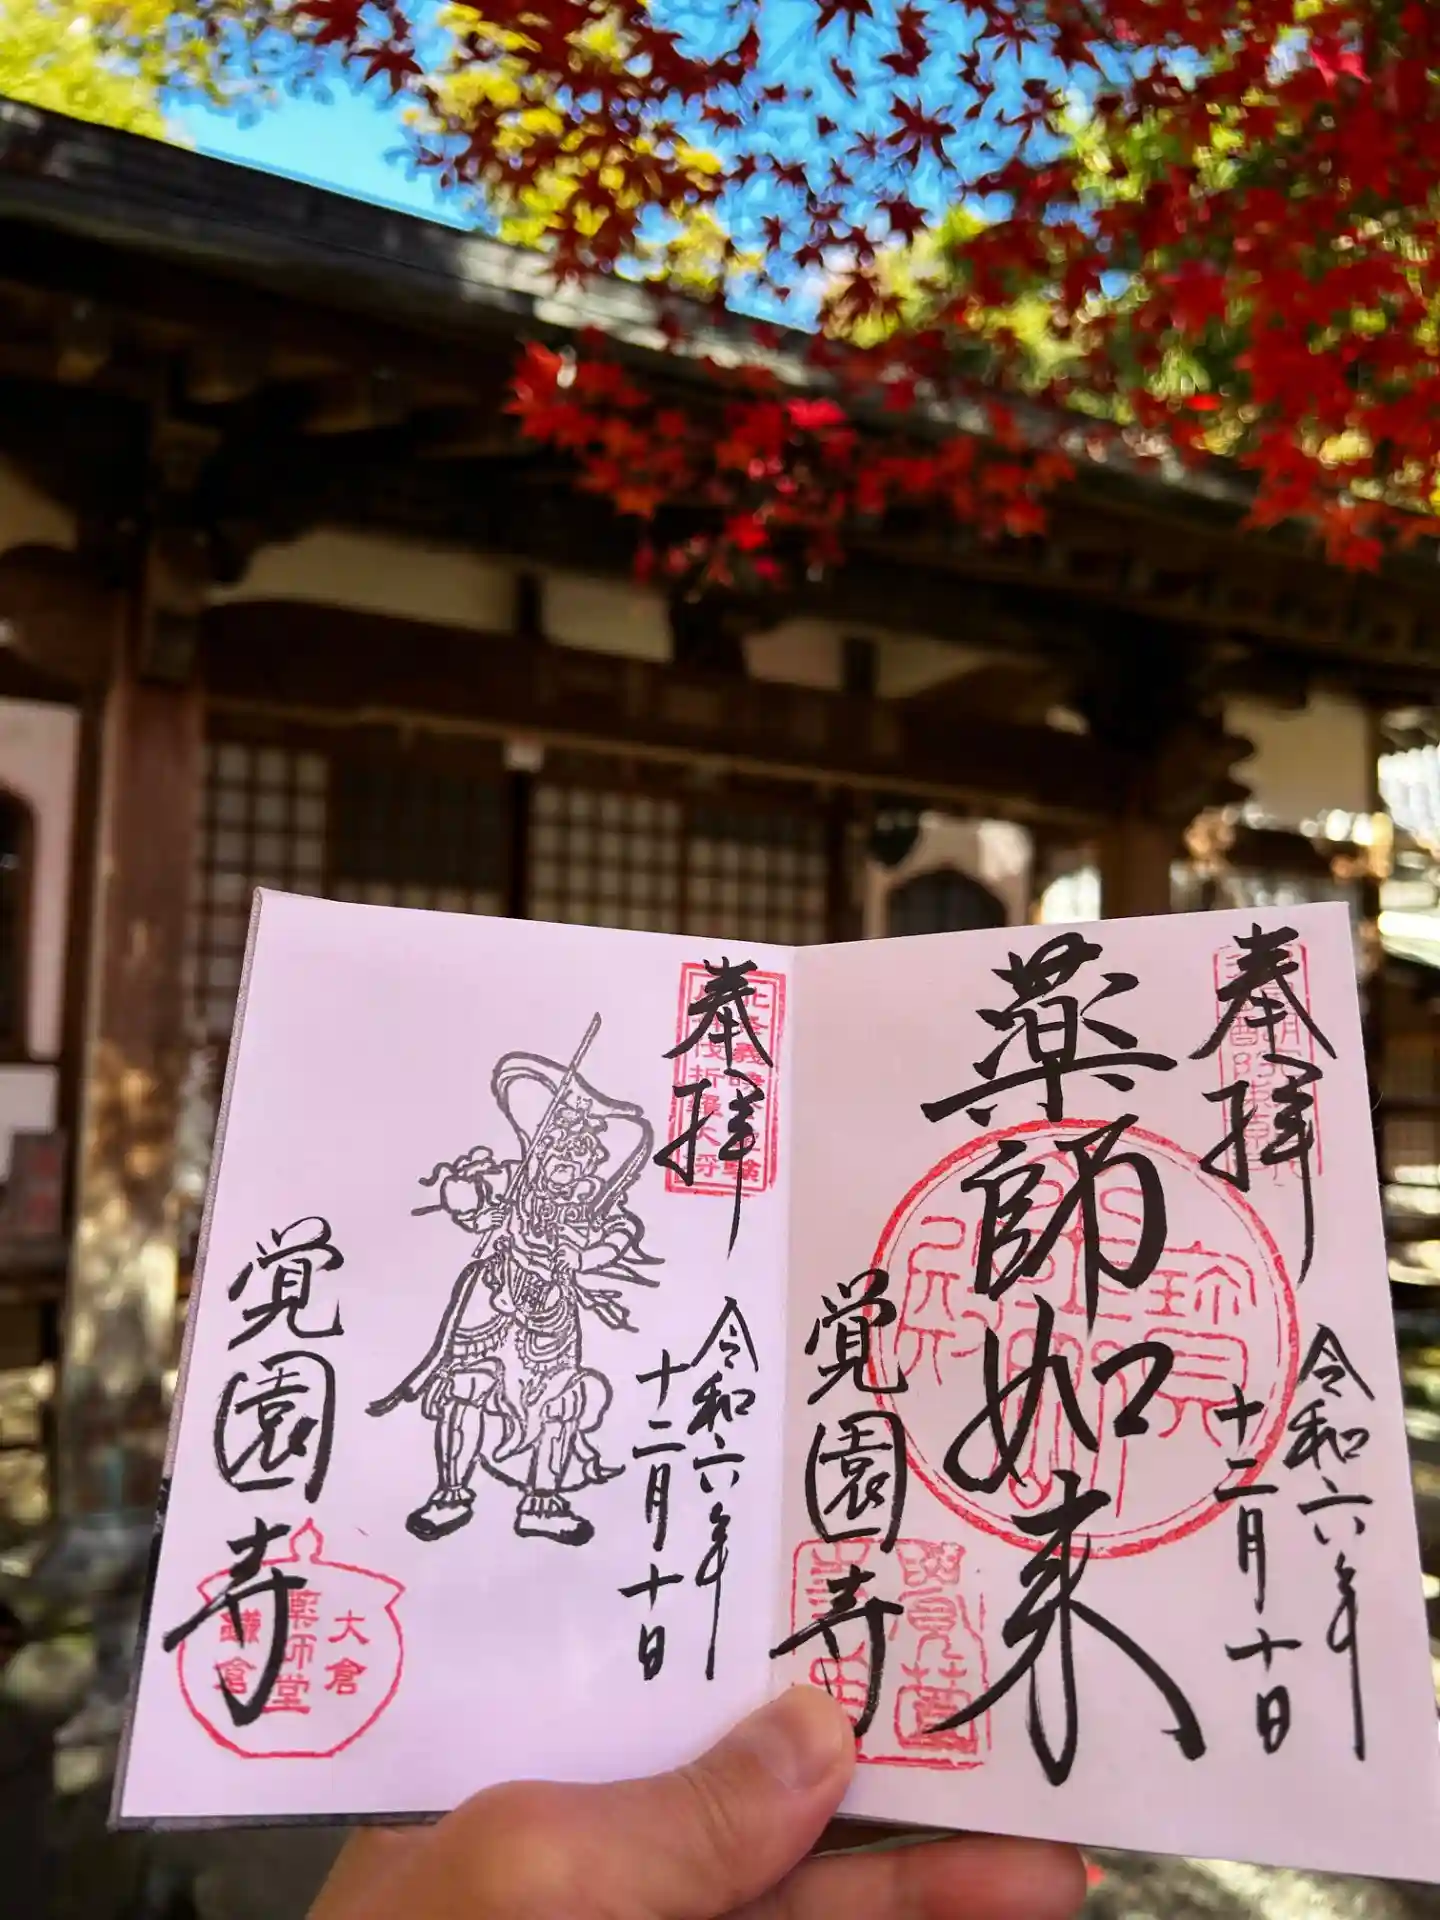 奉拝
薬師如来
令和六年
十二月十日
覚園寺
奉拝
令和六年
十二月十日
覚園寺
大倉
薬師堂
鎌倉